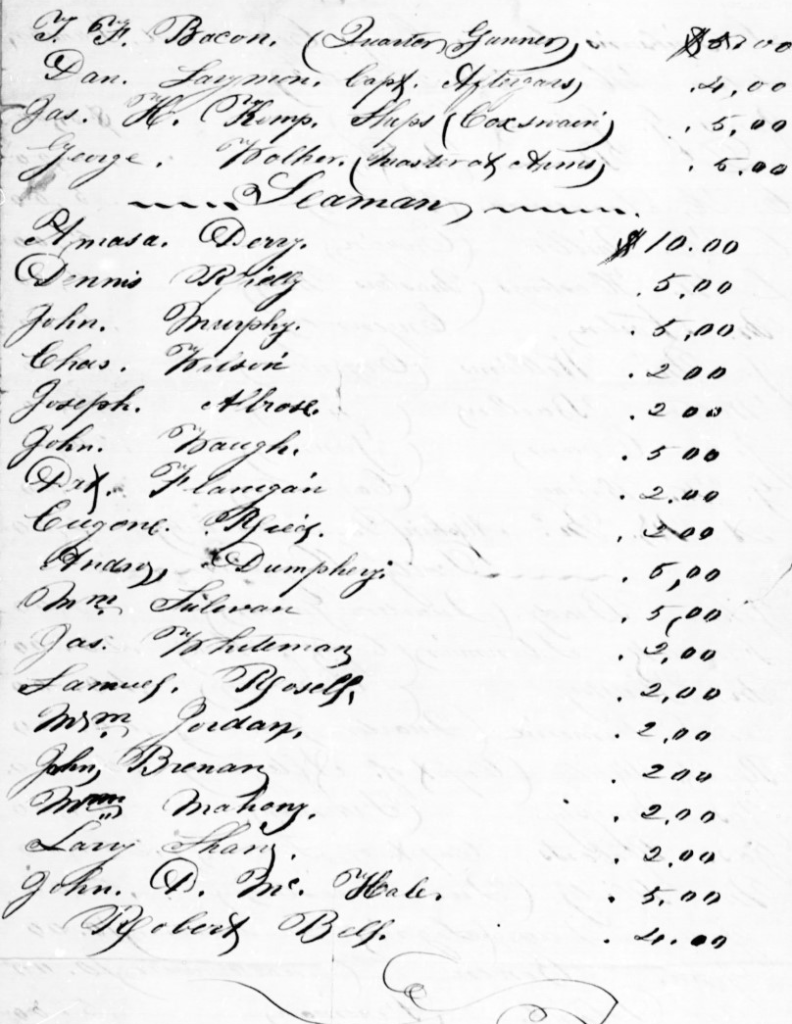 T. F. Bacon. (Quarter Gunner) $5.00
Dan. Laymon. Capt. Afterguard 4,00
Jas. H. Kemp. Ships (Coxswain) . 5,00
George. Walker. (Master at Arms) . 5.00
Seaman
Amasa. Derry. $10.00
Dennis . 5,00
John. Murphy. . 5,00
Chas. Wilson . 200
Joseph. . 200
John. Waugh. . 500
Pat. Flanigan . 2,00
Eugene. . 200
Andrew Dumphey. . 5,00
Wm Sulivan . 5,00
Jas. Whiteman . 2,00
Samuel. Rosell. . 2,00
Wm. Jordan. . 2,00
John, Brenan . 200
Wm Mahony. . 2,00
Lary Shany. . 2,00
John. D. Mc. Hale. . 5,00
Robert Bell. . 4.00